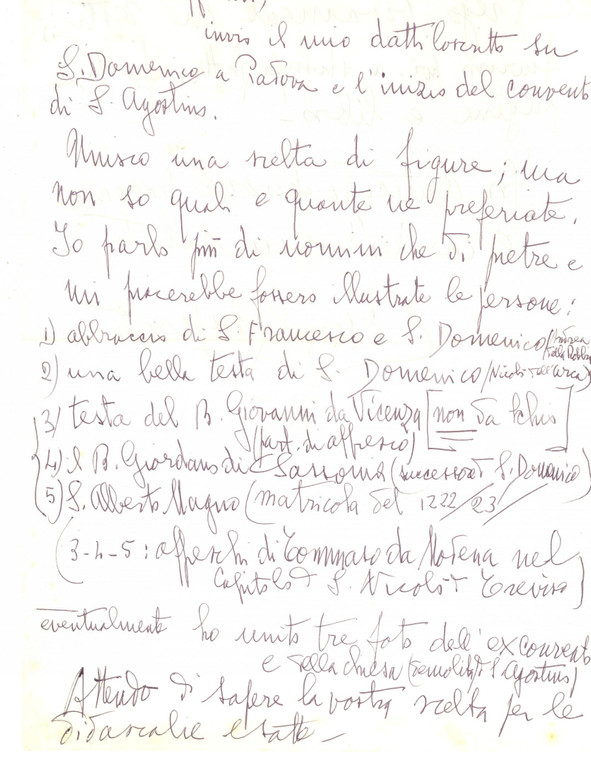 invio il mio dattiloscritto su
S. Domenico a Padova e l'inizio del convento
di S. Agostino.
Unisco una scelta di figure; ma
non so quali e quante ne preferiate.
Io parlo più di uomini che di pietre e
mi piacerebbe fossero illustrate le persone:
1) abbraccio di S. Francesco e S. Domenico (Andrea
della Robbia)
2) una bella testa di S. Domenico (Nicolò dell'Arca)
3) testa del B. Giovanni da Vicenza [non da Schio]
(part. di affresco)
4) il B. Giordano di Sassonia (successore d S. Domenico)
5) S. Alberto Magno (matricola del 1222/23)
(3-4-5: affreschi di Tommaso da Modena nel
Capitolo d S. Nicolò d Treviso)
eventualmente ho unito tre foto dell'ex convento
e della chiesa (demolita) d S. Agostino)
Attendo di sapere la vostra scelta per le
didascalie esatte -